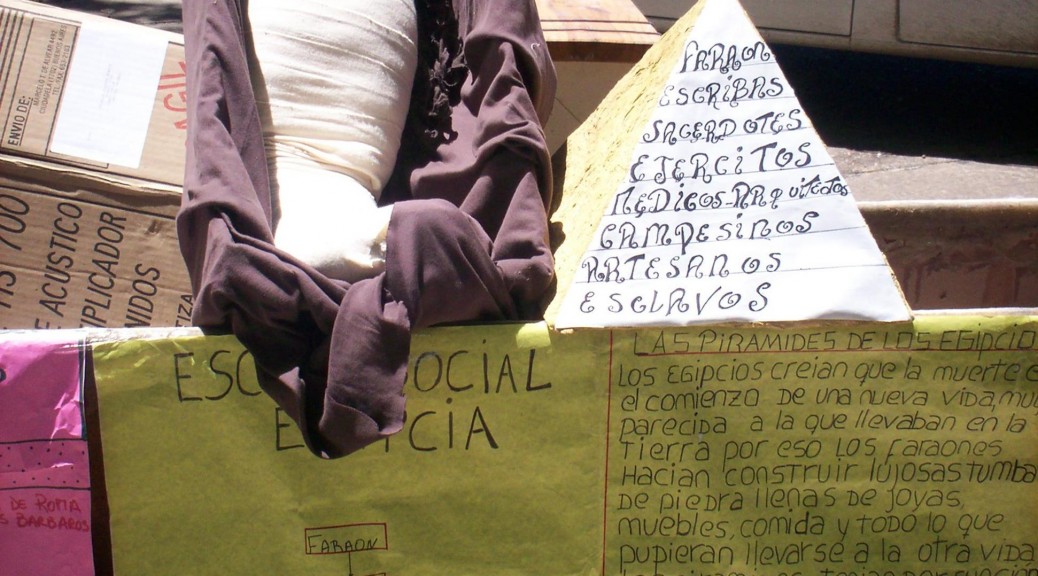 ENVIO DE:
AGUI
HS 700
E ACUSTICO
MPLICADOR
NIDOS
FARAON
ESCRIBAS
SACERDOTES
EJERCITOS
MEDICOS-ARQUITECTOS
CAMPESINOS
ARTESANOS
ESCLAVOS
ESC OCIAL
E CIA
FARAON
LAS PIRAMIDES DE LOS EGIPCIO
LOS EGIPCIOS creian que la muerte e
el comienzo DE una nueva vida, mu
parecida a la que llevaban en la
Tierra por eso LOS Faraones
Hacian construir lujosas tumba
DE piedra llenas DE joyas,
muebles, comida y TODO lo que
pupieran llevarse a la otra vida
DE ROMA
S BARBAROS